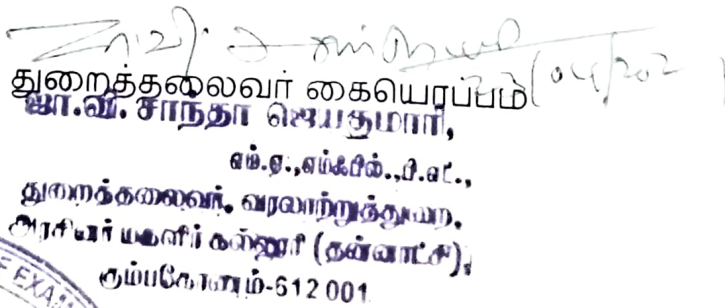 துறைத்தலைவர் கையெரப்பம்
ஜா.வி. சாந்தா ஜெயகுமாரி,
எம்.ஏ.,எம்ஃபில்.,பி.எட்.,
துறைத்தலைவர், வரலாற்றுத்துறை,
அரசினர் மகளிர் கல்லூரி (தன்னாட்சி),
கும்பகோணம்-612 001